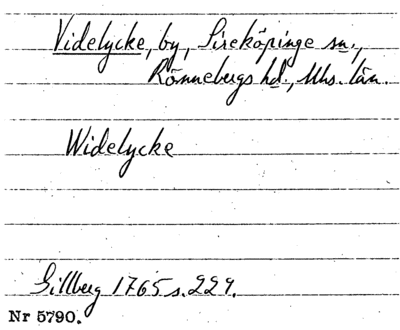 Videlycke, by, Sireköpinge sn.,
Rönnebergs hd., Mhs. län.
Widelycke
Gillberg 1765 s. 229.
Nr 5790.